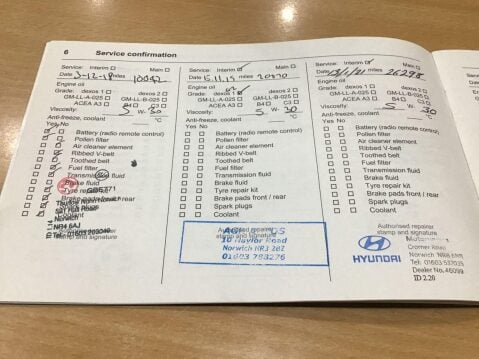 6 Service confirmation
Service: Interim Main
Date 3-12-18 miles 10042
Engine oil
Grade: dexos 1 dexos 2
GM-LL-A-025 GM-LL-B-025
ACEA A3 B4 C3
Viscosity: 5 W- 30
Anti-freeze, coolant
Yes No
Battery (radio remote control)
Pollen filter
Air cleaner element
Ribbed V-belt
Toothed belt
Fuel filter
Transmission fluid
Brake fluid
Tyre repair
Brake pads rear
Spark plugs
Coolant
Norwich
stamp and signature
Service: Interim Main
Date 15.11.19 miles 20870
Engine oil
Grade: dexos 1 dexos 2
GM-LL-A-025 GM-LL-B-025
ACEA A3 B4 C3
Viscosity: 5 W- 30
Anti-freeze, coolant
Yes No
Battery (radio remote control)
Pollen filter
Air cleaner element
Ribbed V-belt
Toothed belt
Fuel filter
Transmission fluid
Brake fluid
Tyre repair kit
Brake pads front / rear
Spark plugs
Coolant
Authorised repairer
stamp and signature
Road
Norwich NR3 2BZ
01603 783276
Service: Interim Main
Date miles 26298
Engine oil
Grade: dexos 1 dexos 2
GM-LL-A-025 GM-LL-B-025
ACEA A3 B4 C3
Viscosity: 5 W- 30
Anti-freeze, coolant
Yes No
Battery (radio remote control)
Pollen filter
Air cleaner element
Ribbed V-belt
Toothed belt
Fuel filter
Transmission fluid
Brake fluid
Tyre repair kit
Brake pads front / rear
Spark plugs
Coolant
Authorised repairer
stamp and signature
HYUNDAI
Cromer Road
Norwich NR6
Tel: 01603
Dealer No.
ID 2.20